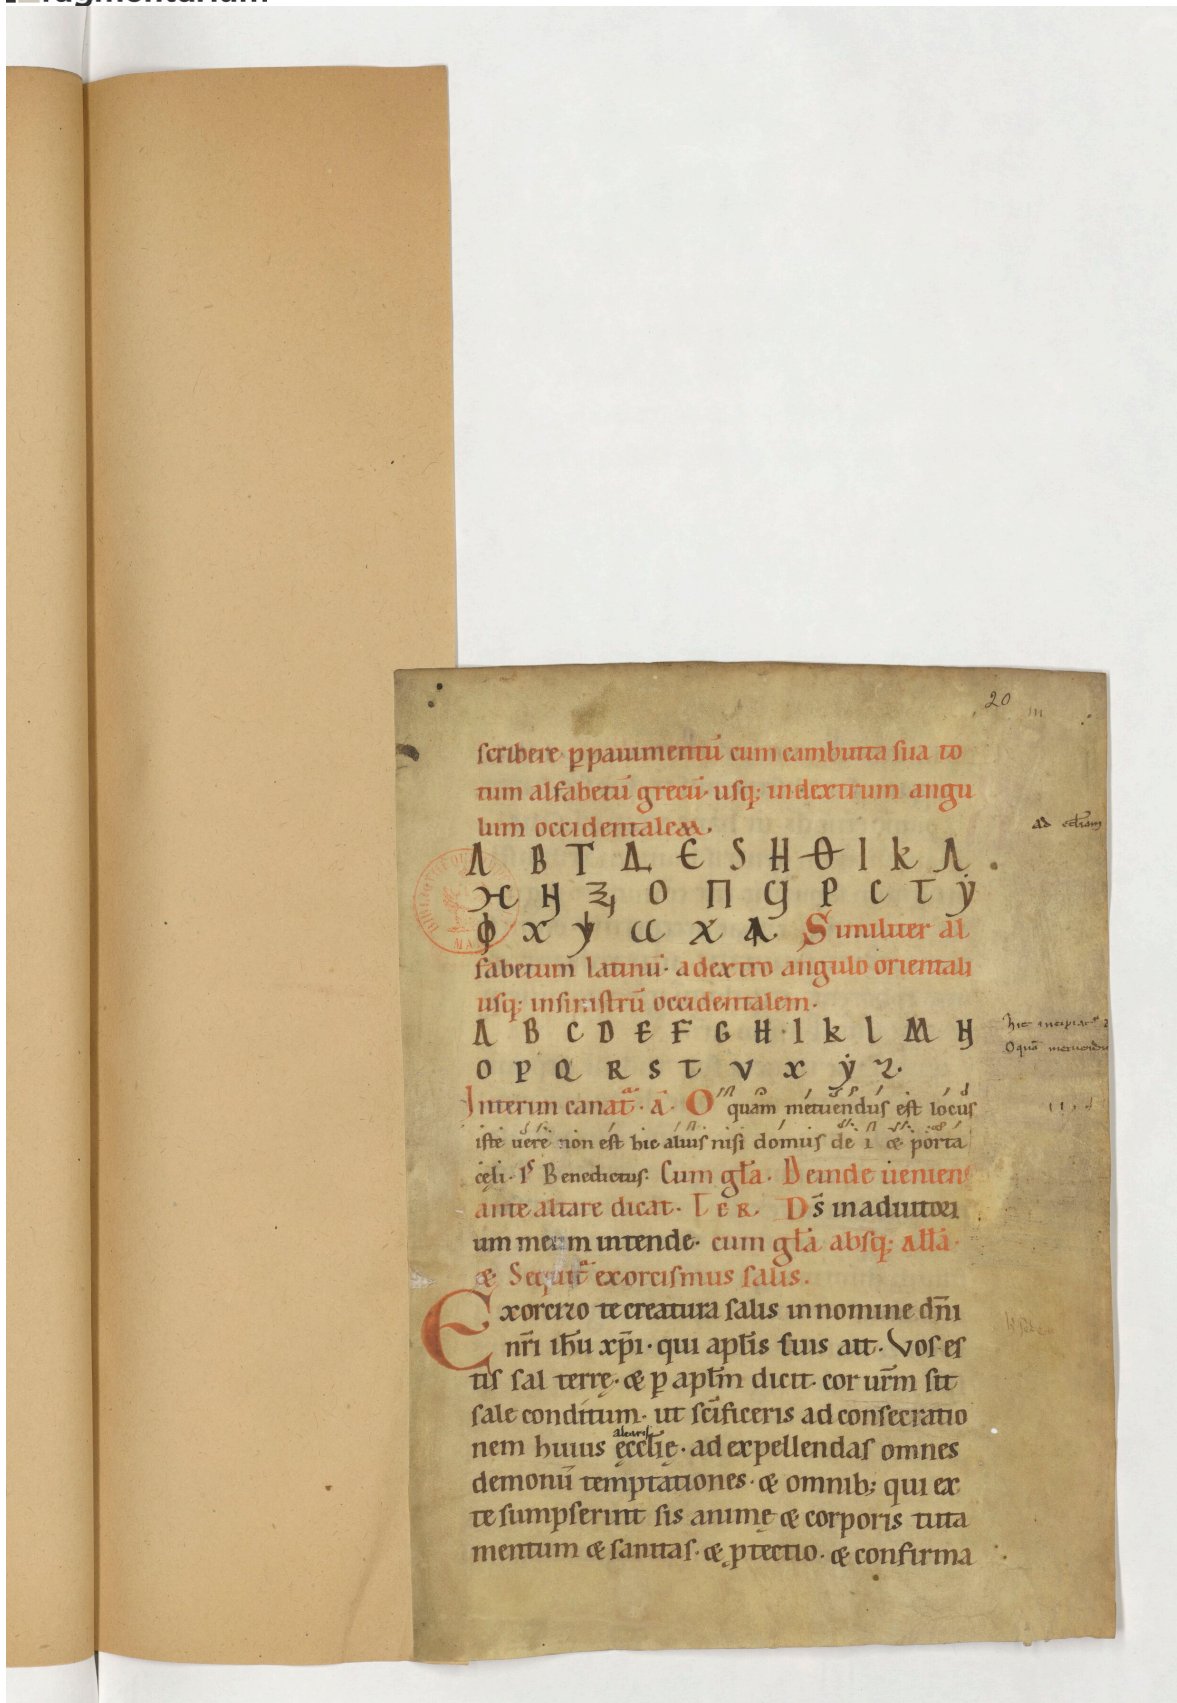 20
scribere p̱ pauimentū cum cambutta sua to
tum alfabetū grecū· usq; in dextrum angu
lum occidentalem.
Λ B Γ Δ Є S H Θ I K Λ
O Π Ϥ P C T ẏ
ϕ X ψ Ѡ X Similiter al
fabetum latinū· a dextro angulo orientali
usq; in sinistrū occidentalem·
A B C D E F G H · I K L M N
O P Q R S T V X ẏ Z·
Interim canat̃· a· O quam metuendus est locus
iste uere non est hic aliud nisi domus dei & porta
cęli· Pˢ Benedictus· Cum gła· Deinde uenien
ante altare dicat· TER. D̄s in adiutori
um meum intende· cum gła absq; Ałła·
& Sequit̃ exorcismus salis.
Exorcizo te creatura salis in nomine dn̄i
nr̄i ihū xp̄i· qui apłis suis ait· Vos es
tis sal terre· & p̱ apłm dicit· cor ur̄m sit
sale conditum· ut sc̄ificeris ad consecratio
altaris
nem huius ęccłię· ad expellendas omnes
demonū temptationes· & omnib; qui ex
te sumpserint sis animę & corporis tuta
mentum & sanitas· & ptectio· & confirma
ad
hic incipiat̃
O quā metuendus